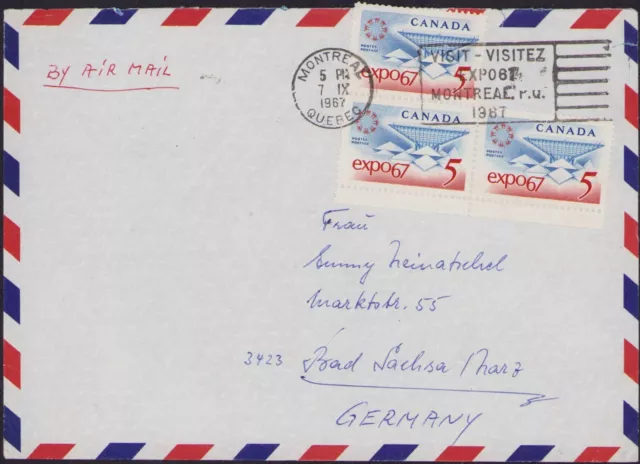 BY AIR MAIL
MONTREAL
5 PM
7 IX
1967
QUEBEC
VISIT - VISITEZ
EXPO67
MONTREAL P.Q.
1967
CANADA
expo67 5
CANADA
POSTES
POSTAGE
expo67 5
CANADA
POSTES
POSTAGE
expo67 5
Frau
Marktstr. 55
3423 Bad Sachsa Harz
GERMANY